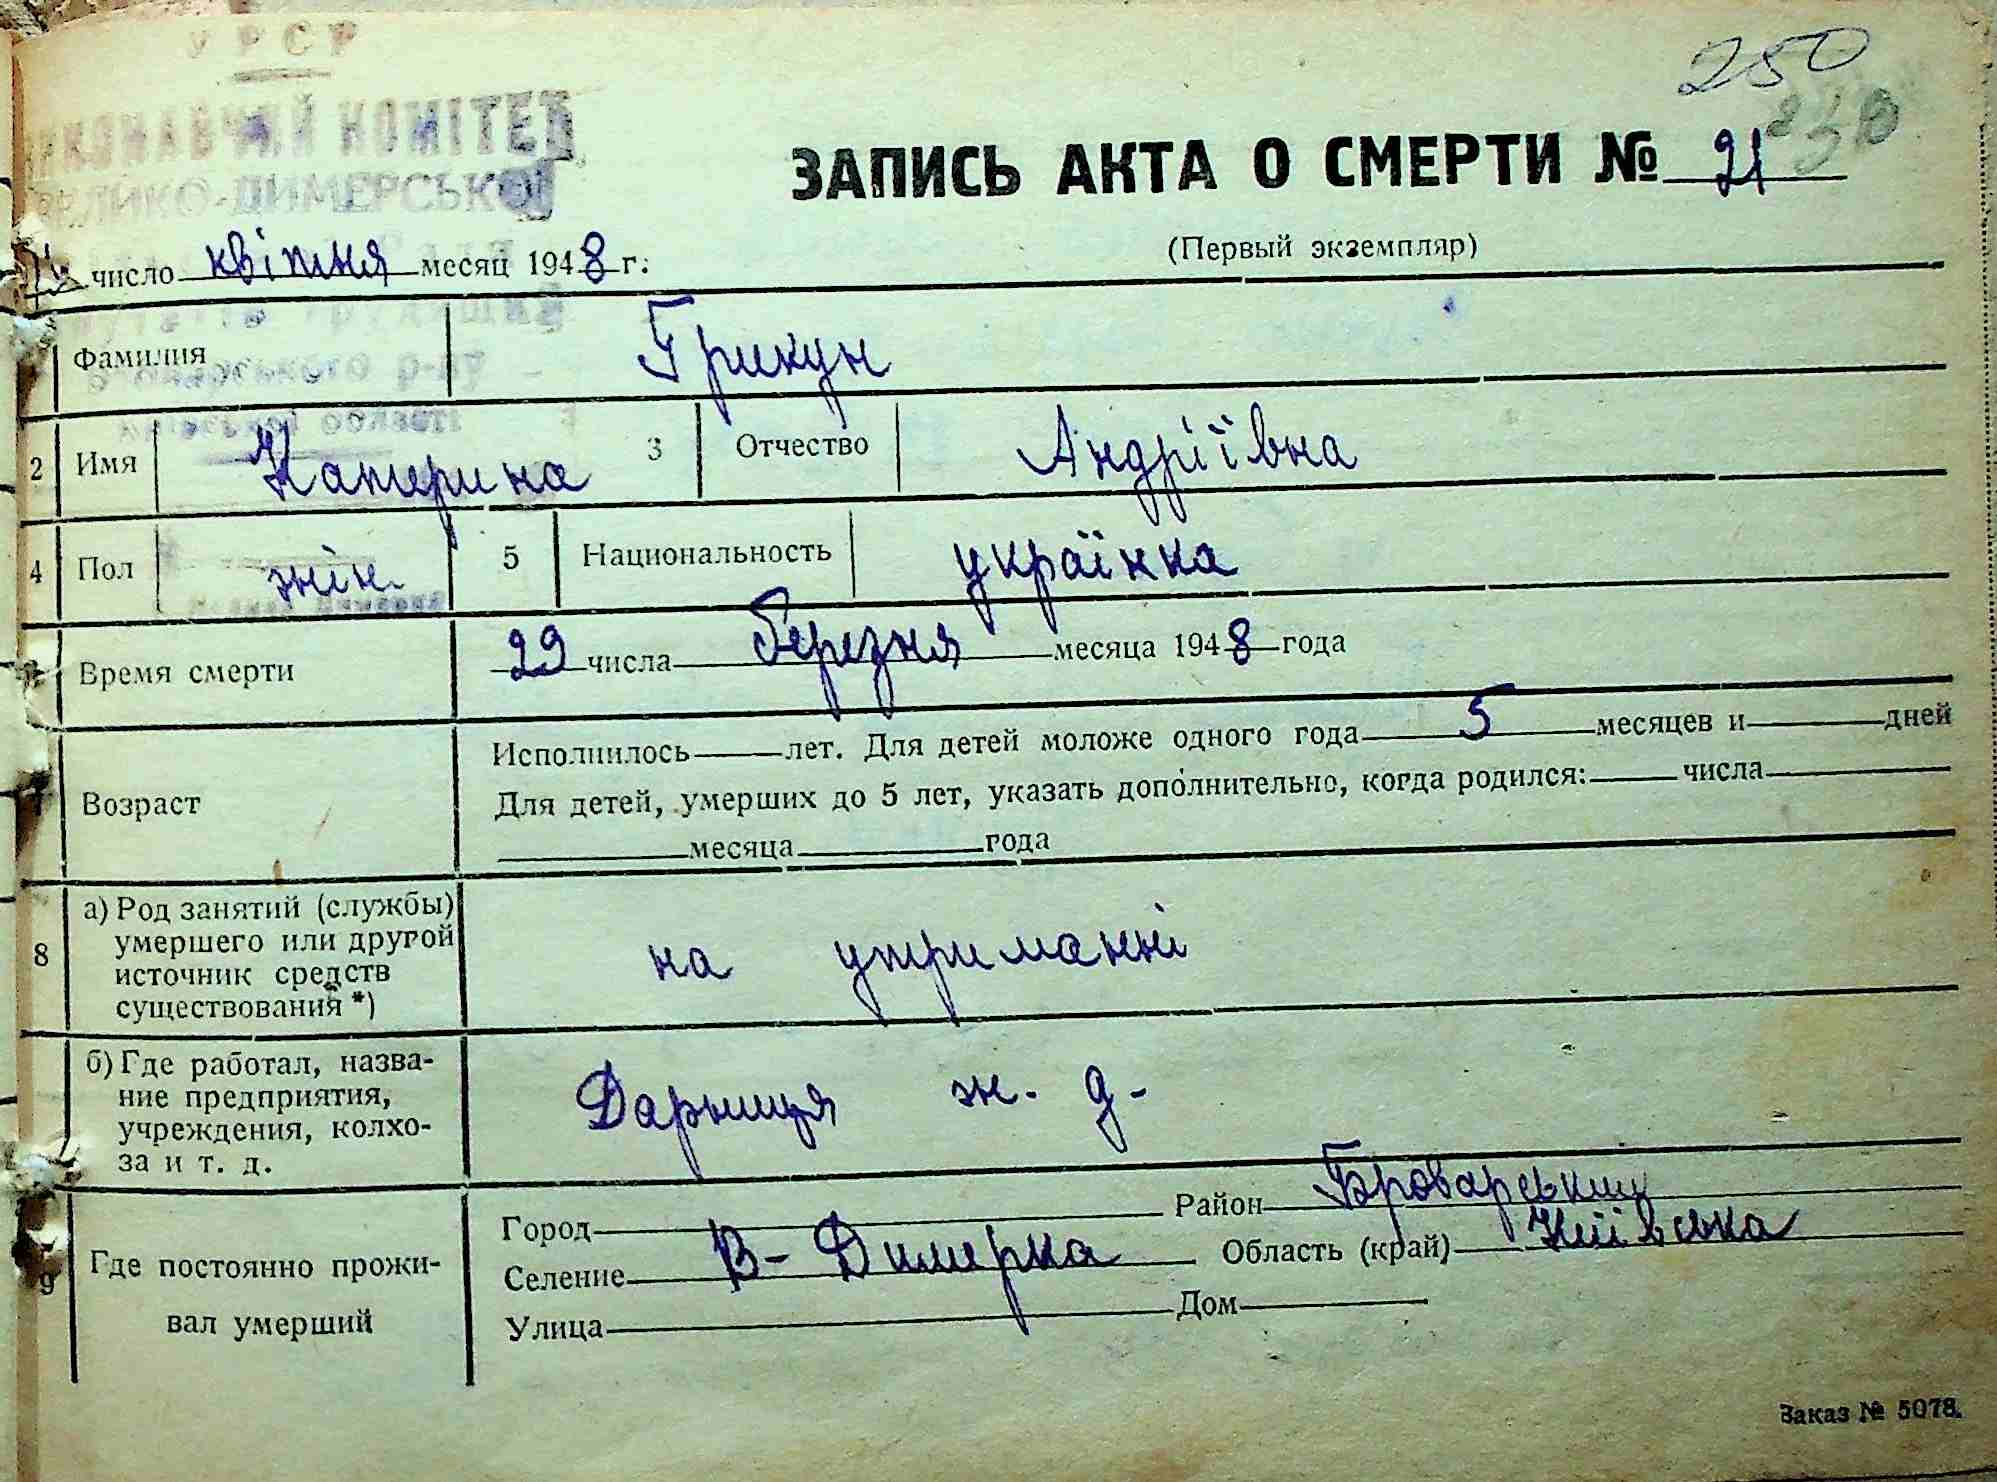 У Р С Р
ВИКОНАВЧИЙ КОМІТЕТ
ВЕЛИКО-ДИМЕРСЬКОЇ
250
ЗАПИСЬ АКТА О СМЕРТИ № 21
(Первый экземпляр)
число квітня месяц 1948 г.
р-ну
області
Фамилия Грикун
2 Имя Катерина 3 Отчество Андріївна
4 Пол жін. 5 Национальность українка
Время смерти 29 числа березня месяца 1948 года
Исполнилось лет. Для детей моложе одного года 5 месяцев и дней
7 Возраст Для детей, умерших до 5 лет, указать дополнительно, когда родился: числа
месяца года
8 а) Род занятий (службы) умершего или другой источник средств существования *) на утриманні
б) Где работал, название предприятия, учреждения, колхоза и т. д. Дарниця ж. д.
9 Где постоянно проживал умерший
Город Район Броварський
Селение В-Димерка Область (край) Київська
Улица Дом
Заказ № 5078.